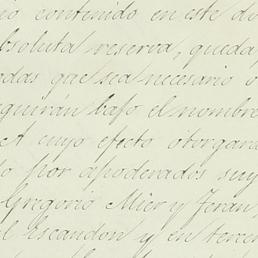 io contenido en este do
bsoluta reserva, queda
das que sea necesario o
guirán bajo el nombre
A cuyo efecto otorgara
o por apoderados suy
Gregorio Mier y Terán,
l Escandon y en tercer